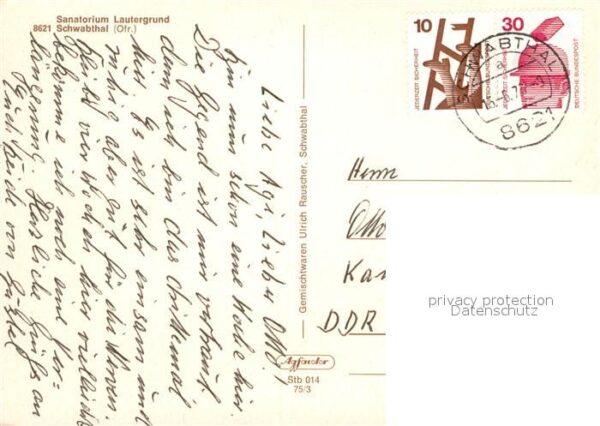 Sanatorium Lautergrund
8621 Schwabthal (Ofr.)
Liebe Agi, Lieber Otto,
nun schon eine Woche hier.
Die Gegend ist mir vertraut
denn ich bin das drittemal
hier. Es ist sehr einsam und
ruhig aber gut für die Nerven.
bleibt vier Wochen hier vielleicht
bekomme ich noch eine Ver-
längerung. Herzliche Grüße an
Euch beide von
Gemischtwaren Ulrich Rauscher, Schwabthal
Agfacolor
Stb 014
75/3
10
JEDERZEIT SICHERHEIT
DEUTSCHE BUNDESPOST
30
JEDERZEIT SICHERHEIT
DEUTSCHE BUNDESPOST
SCHWABTHAL
a
8621
Herrn
Otto
DDR
privacy protection
Datenschutz